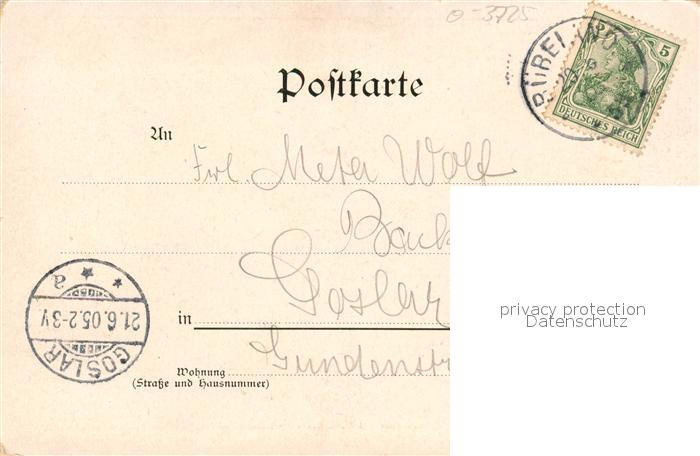 ө-3725
RÜBELAND
5
DEUTSCHES REICH
Postkarte
An
Frl. Meta Wolf
Bank
Goslar
in
Gundenstr
Wohnung
(Straße und Hausnummer)
a
21.6.05.2-3V
GOSLAR
privacy protection
Datenschutz